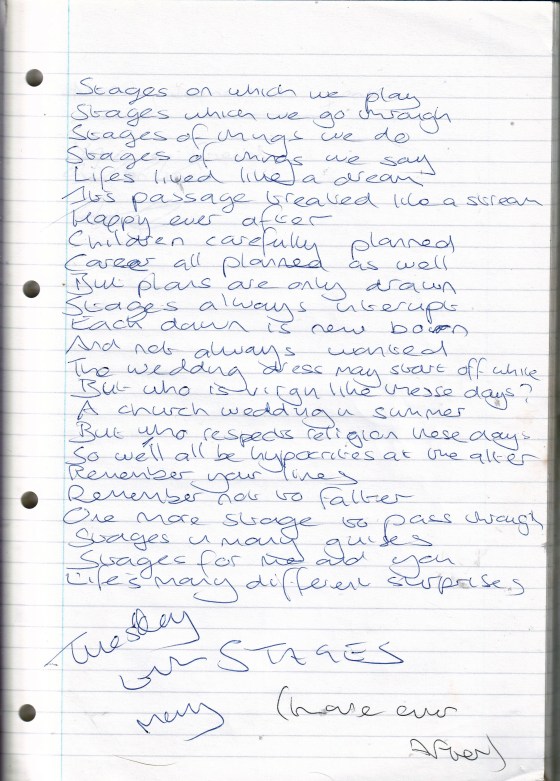 Stages on which we play
Stages which we go through
Stages of things we do
Stages of things we say
Lifes lived like a dream
It's passage treated like a stream
Happy ever after
Children carefully planned
Career all planned as well
But plans are only drawn
Stages always interupt
Each dawn is new born
And not always wanted
The wedding dress may start off white
But who is virgin like these days?
A church wedding in summer
But who respects religion these days
So we'll all be hypocrites at the alter
Remember your lines
Remember not to falter
One more stage to pass through
Stages in many guises
Stages for me and you
Life's many different surprises
Tuesday
STAGES
(have ever
After)